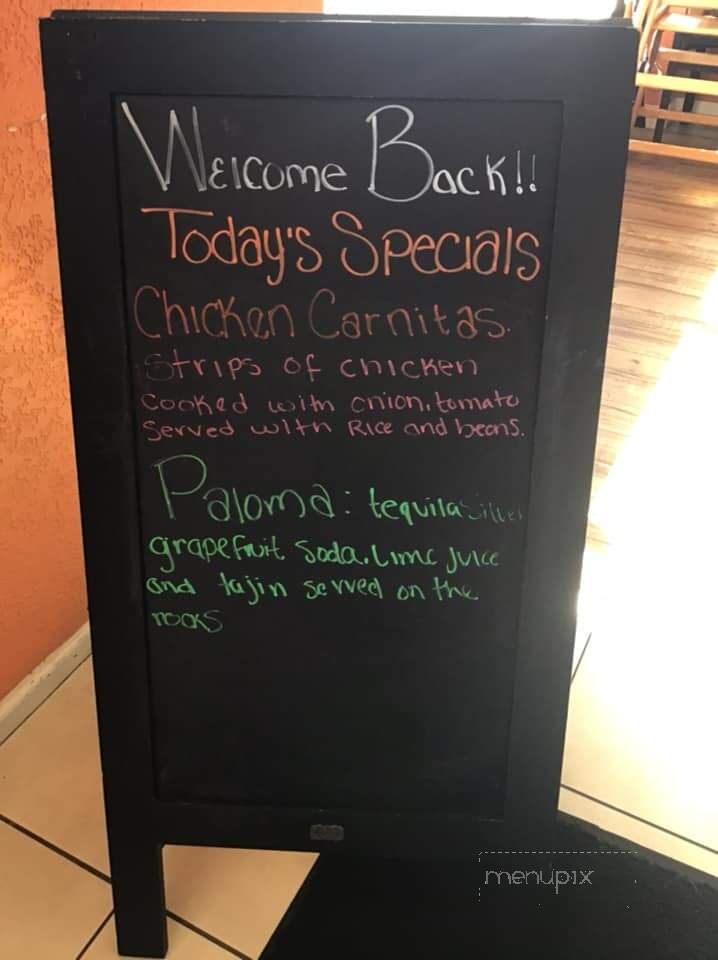 Welcome Back!!
Today's Specials
Chicken Carnitas.
Strips of chicken
cooked with onion, tomato
served with Rice and beans.
Paloma: tequila silver
grapefruit soda, Lime Juice
and tajin served on the
rocks
menupix